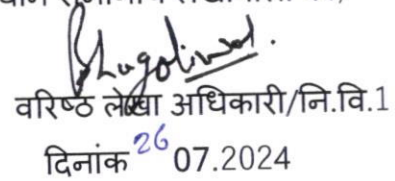 वरिष्ठ लेखा अधिकारी/नि.वि.1
दिनांक 26 07.2024